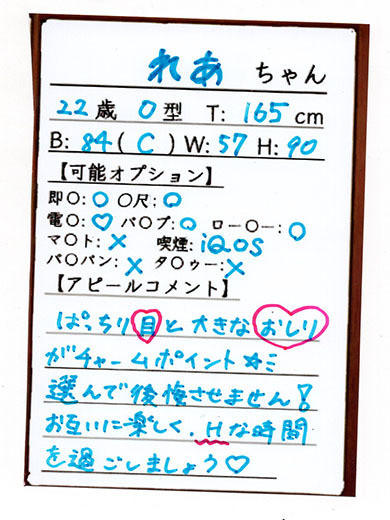 れあ ちゃん
22歳 O型 T: 165cm
B: 84(C) W: 57 H: 90
【可能オプション】
即〇:○ 〇尺:○
電〇:♡ バ〇ブ:○ ロー〇ー:○
マ〇ト:× 喫煙:iQOS
パ〇パン:× タ〇ゥー:×
【アピールコメント】
ぱっちり目と大きなおしり
がチャームポイント☆ミ
選んで後悔させません!
お互いに楽しく、Hな時間
を過ごしましょう♡